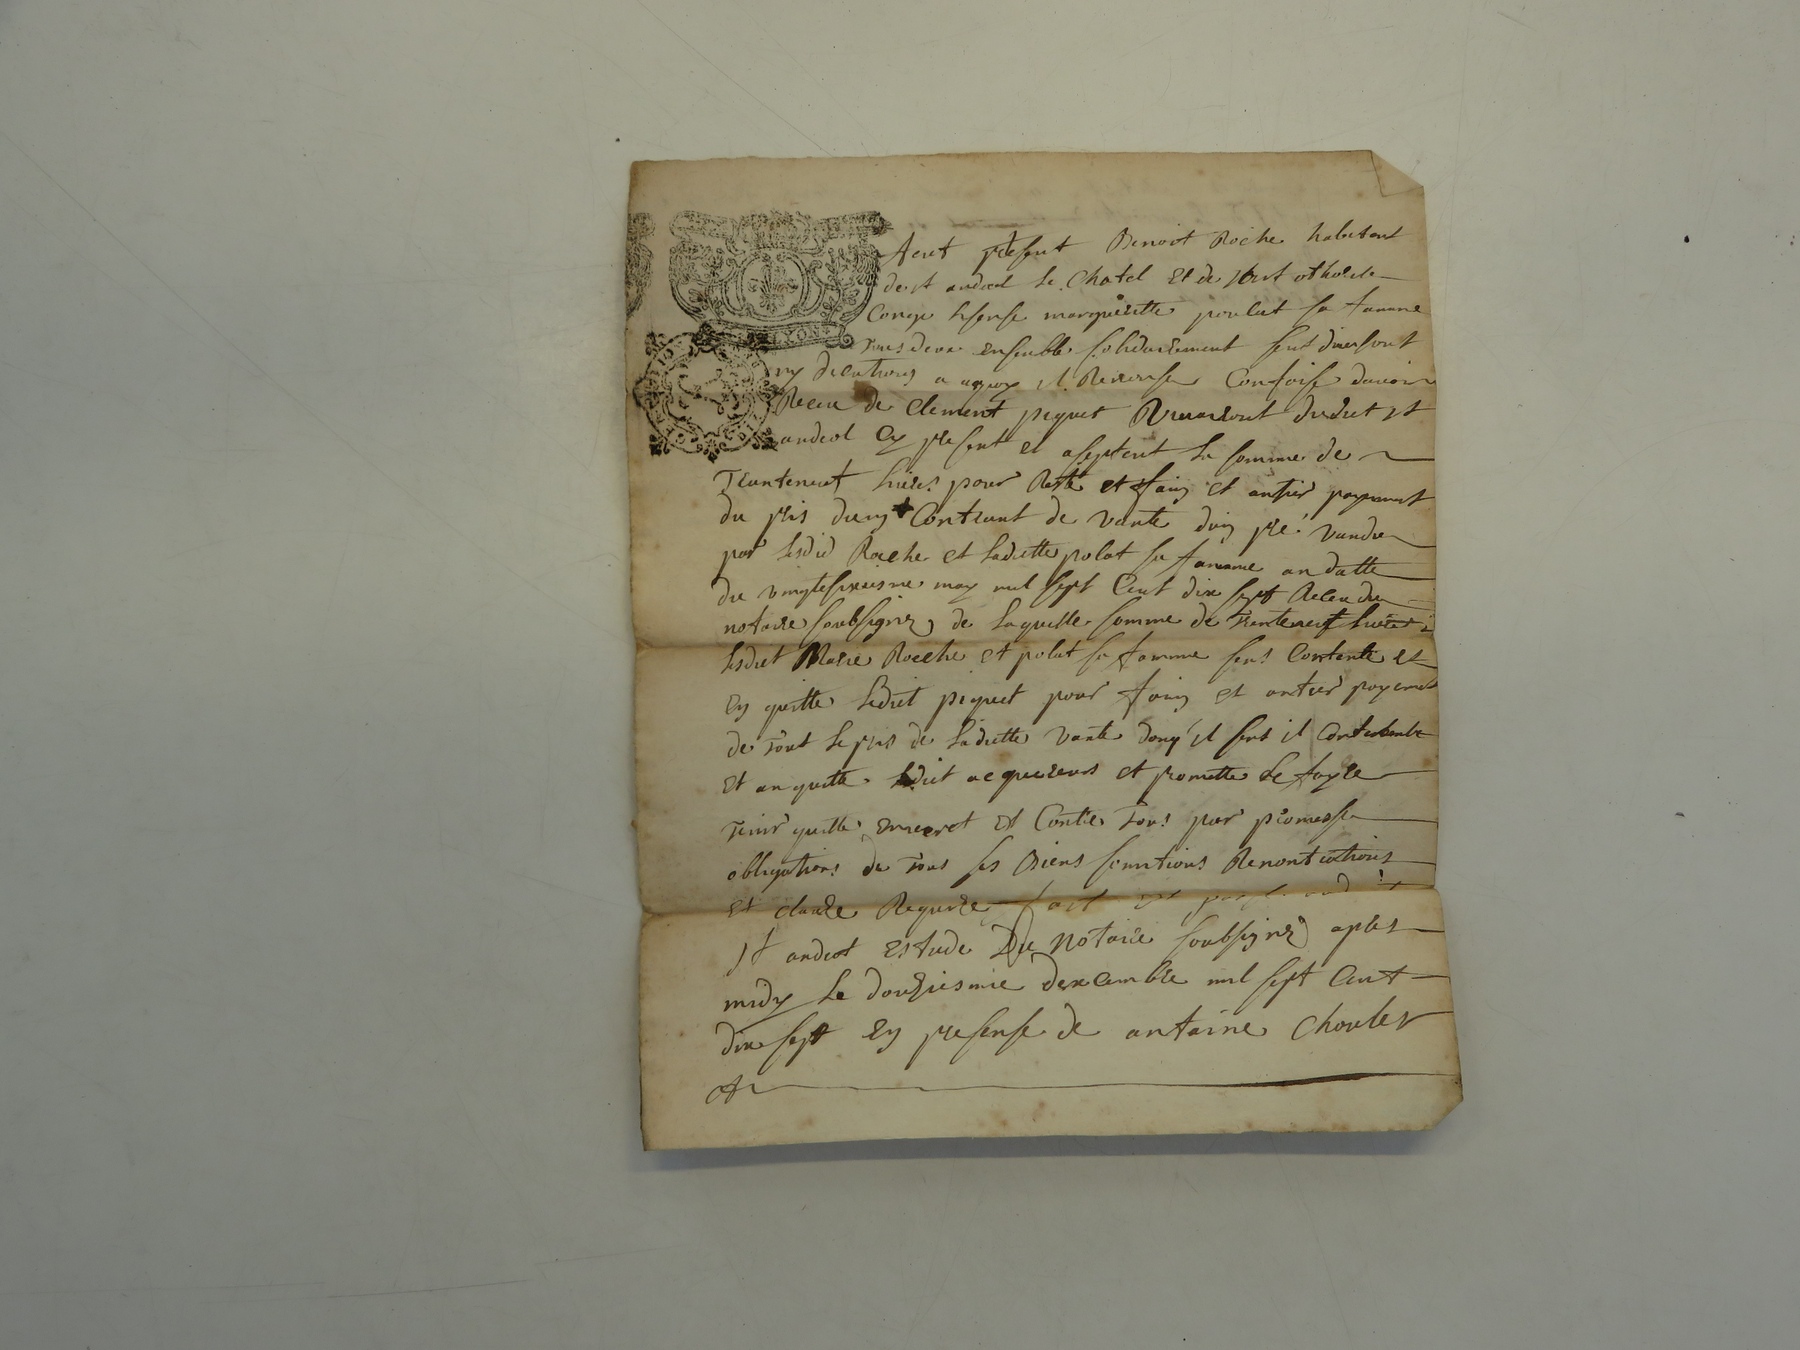 present Benoist Roche habitant
de st andeol le Chatel et de
margueritte poulat sa famme
tous deux ensemble solidairement
a Confaise davoir
Receu de Clement piquet dudict st
andeol cy present et aseptent la somme de
livres pour Reste et fain et antier payement
du pris dung Contrant de vante dung pré vandu
par lesdid Roche et laditte polat sa famme an datte
du vingtesixiesme may mil sept Cent dix sept Receu du
notaire soubsigné de laquelle somme de trenteneuf livres
lesdict Marié Roche et polat sa famme sens Contente et
en quitte ledict piquet pour fain et antier payemet
de tout le pris de laditte vante dong il sens il
et an quitte ledict aquereurs et promette le fayre
tenir quitte anvert et Contre tous par promesse
obligations de tous ses Biens soumtions Renontiations
et clauze Requize fait et
st andeol estude Du Notaire soubsigné apres
midy le douziesme dexcembre mil sept Cent
dix sept en presense de antoine